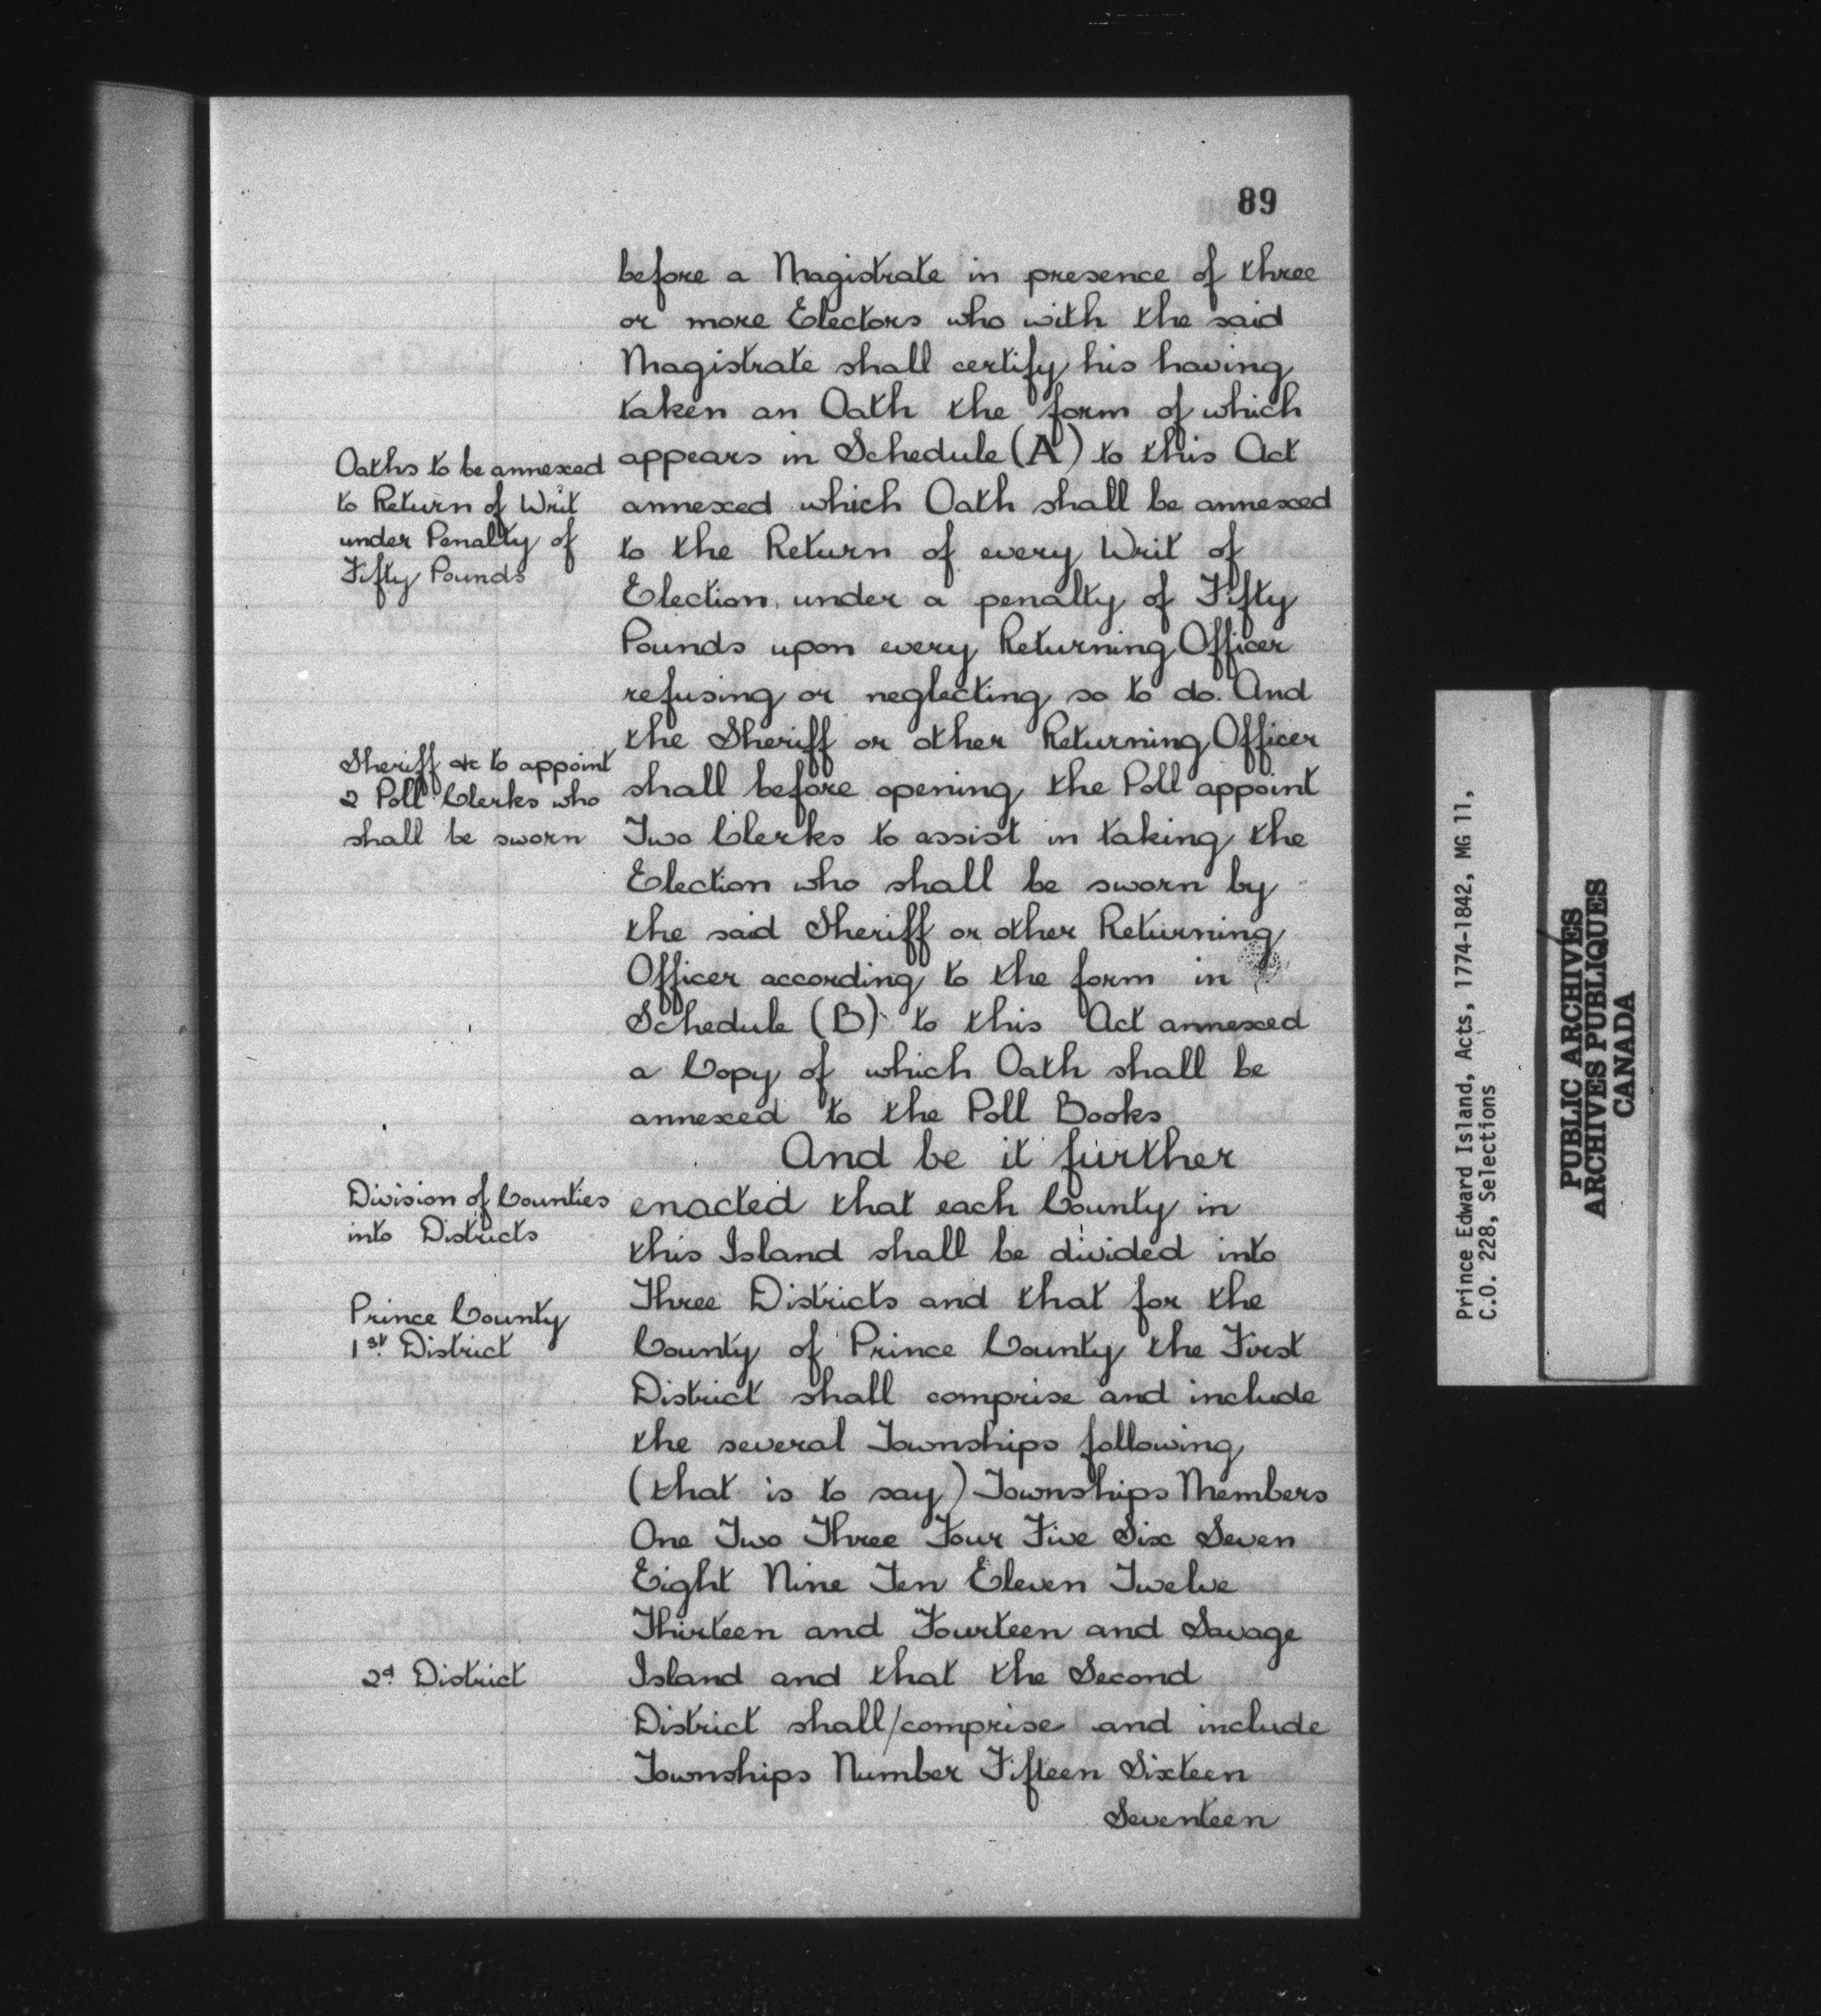 89
before a Magistrate in presence of three
or more Electors who with the said
Magistrate shall certify his having
taken an Oath the form of which
Oaths to be annexed
to Return of Writ
under Penalty of
Fifty Pounds
appears in Schedule (A) to this Act
annexed which Oath shall be annexed
to the Return of every Writ of
Election under a penalty of Fifty
Pounds upon every Returning Officer
refusing or neglecting so to do. And
the Sheriff or other Returning Officer
Sheriff &c to appoint
2 Poll Clerks who
shall be sworn
shall before opening the Poll appoint
Two Clerks to assist in taking the
Election who shall be sworn by
the said Sheriff or other Returning
Officer according to the form in
Schedule (B) to this Act annexed
a Copy of which Oath shall be
annexed to the Poll Books
And be it further
Division of Counties
into Districts
enacted that each County in
this Island shall be divided into
Prince County
1st District
Three Districts and that for the
County of Prince County the First
District shall comprise and include
the several Townships following
(that is to say) Townships Members
One Two Three Four Five Six Seven
Eight Nine Ten Eleven Twelve
Thirteen and Fourteen and Savage
2d District
Island and that the Second
District shall/comprise and include
Townships Number Fifteen Sixteen
Seventeen
Prince Edward Island, Acts, 1774-1842, MG 11,
C.O. 228, Selections
PUBLIC ARCHIVES
ARCHIVES PUBLIQUES
CANADA